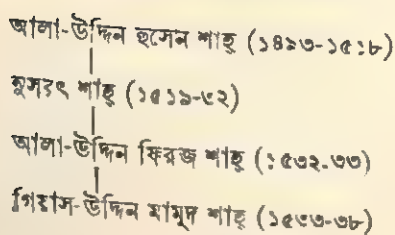 আলা-উদ্দিন হুসেন শাহ্ (১৪৯৩-১৫১৮)
নুসরৎ শাহ্ (১৫১৯-৩২)
আলা-উদ্দিন ফিরজ শাহ্ (১৫৩২-৩৩)
গিয়াস-উদ্দিন মামুদ শাহ্ (১৫৩৩-৩৮)